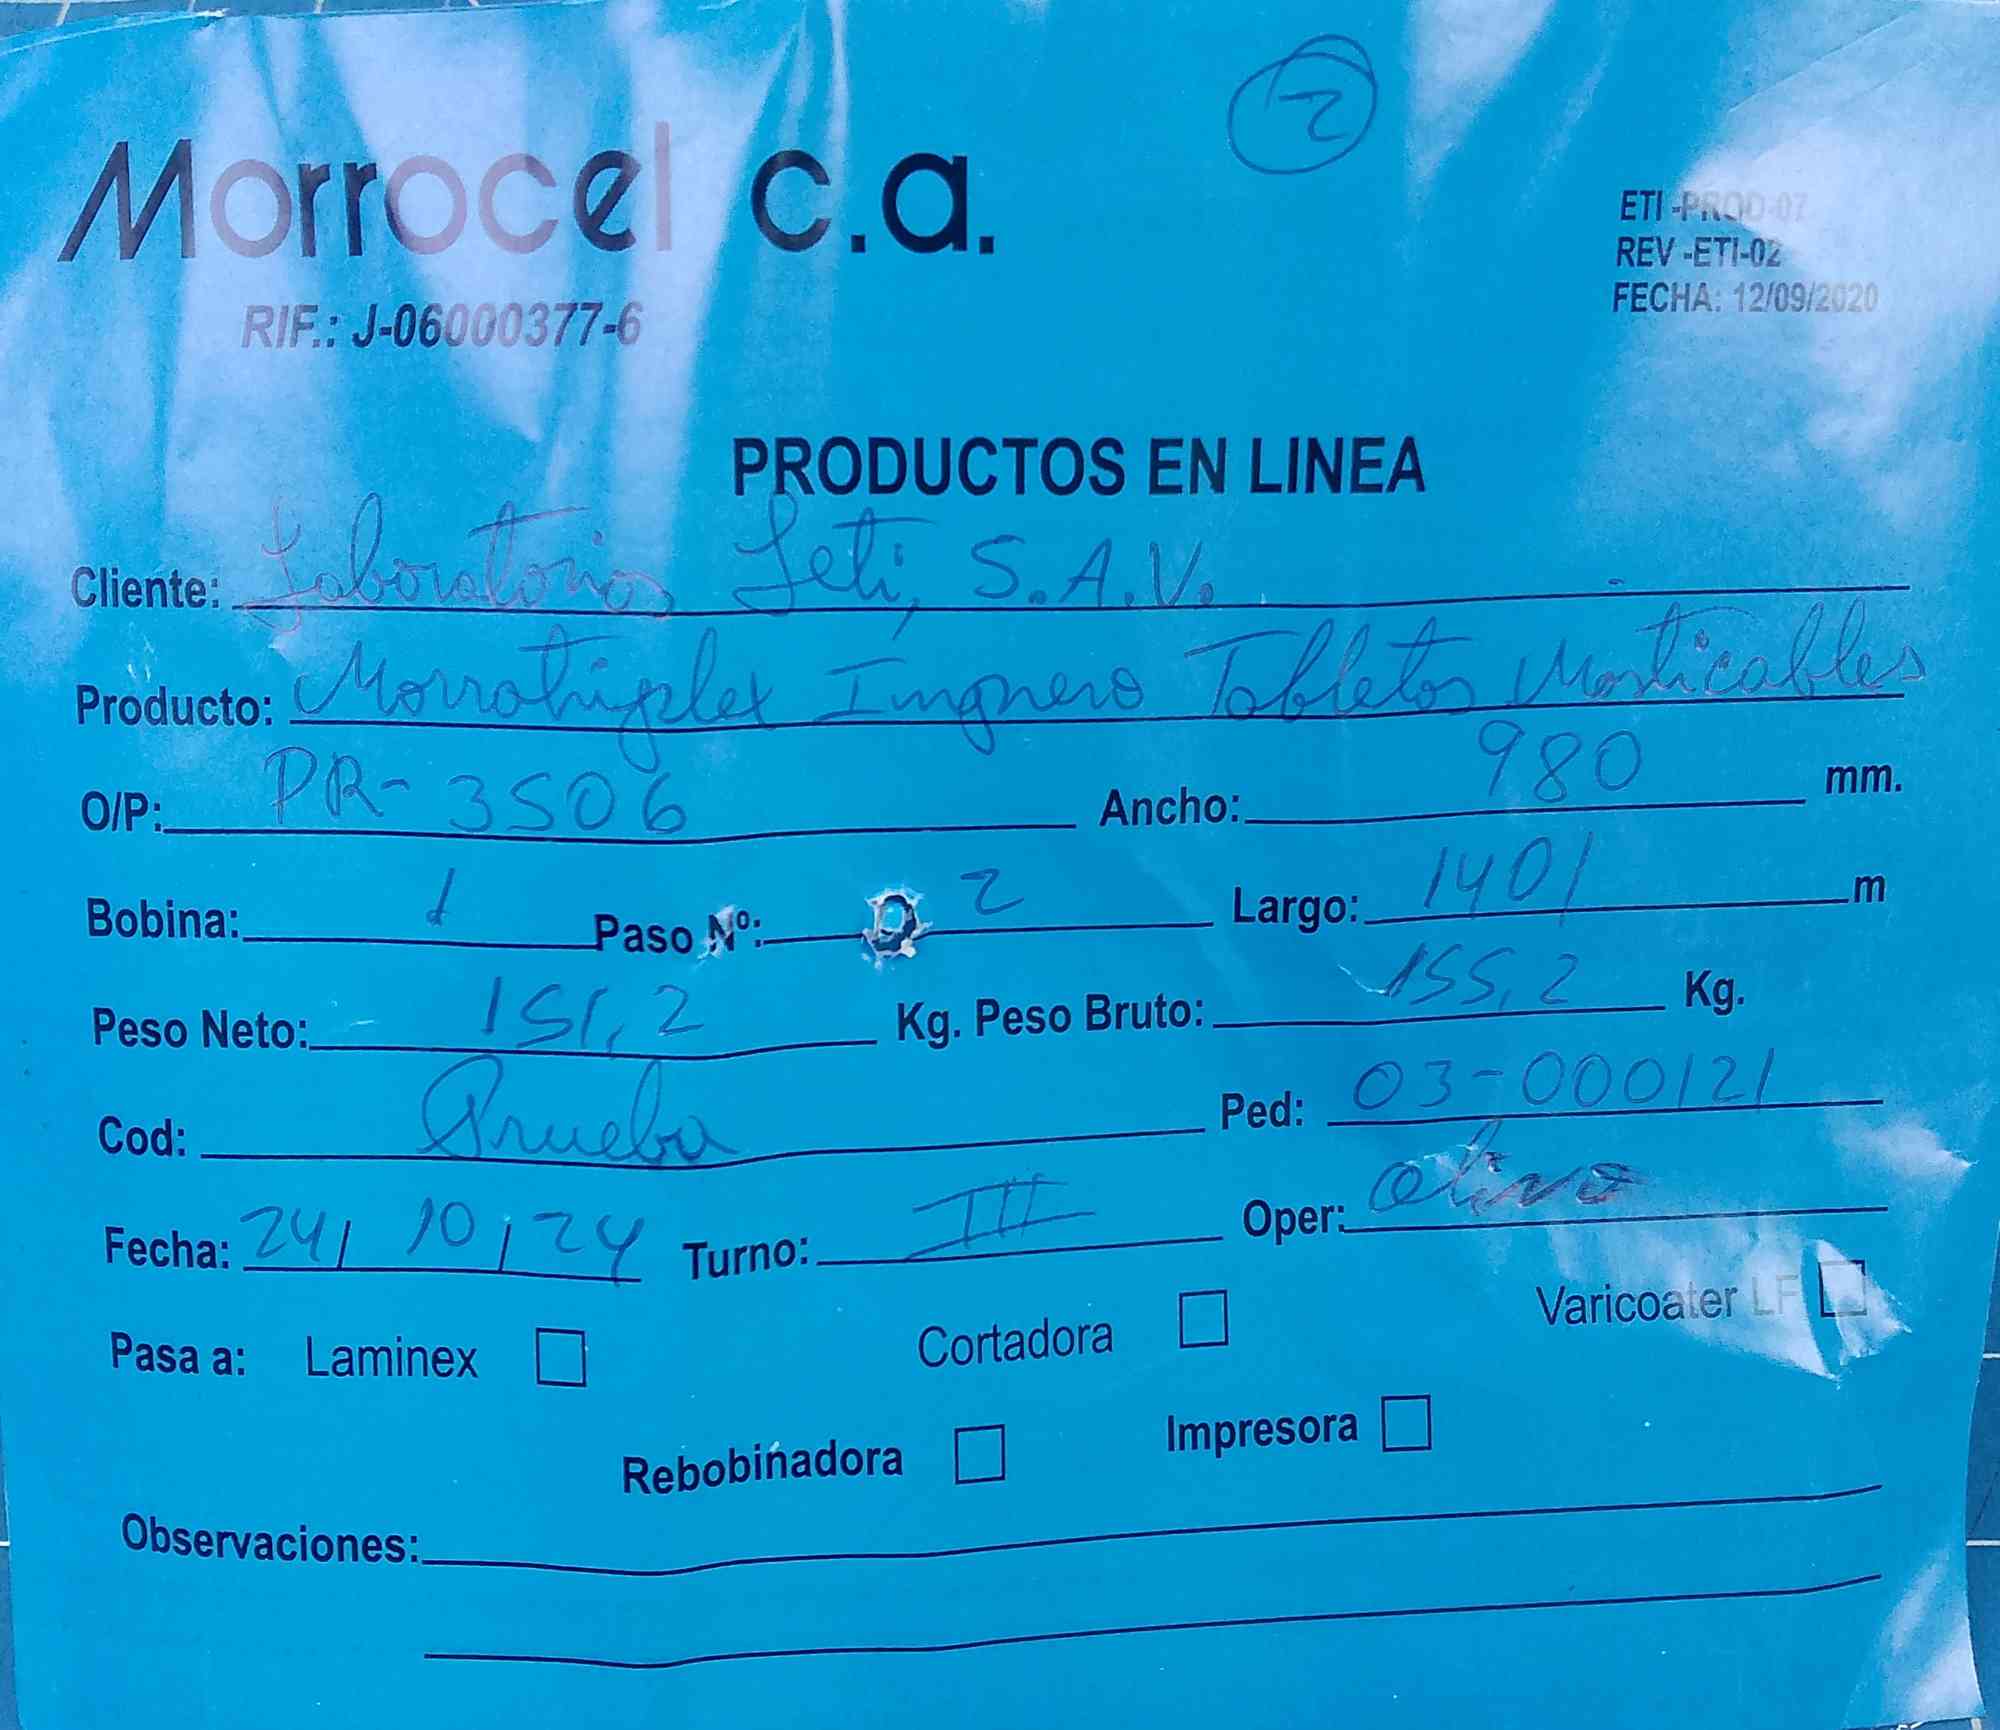 2
Morrocel c.a.
RIF.: J-06000377-6
ETI -PROD-07
REV -ETI-02
FECHA: 12/09/2020
PRODUCTOS EN LINEA
Cliente: Laboratorios Leti, S.A.V.
Producto: Morrotriplex Tabletas Masticables
O/P: PR-3506 Ancho: 980 mm.
Bobina: 1 Paso Nº: 2 Largo: 1401 m
Peso Neto: 151,2 Kg. Peso Bruto: 155,2 Kg.
Cod: Prueba Ped: 03-000121
Fecha: 24/10/24 Turno: III Oper:
Pasa a: Laminex Cortadora Varicoater LF
Rebobinadora Impresora
Observaciones: